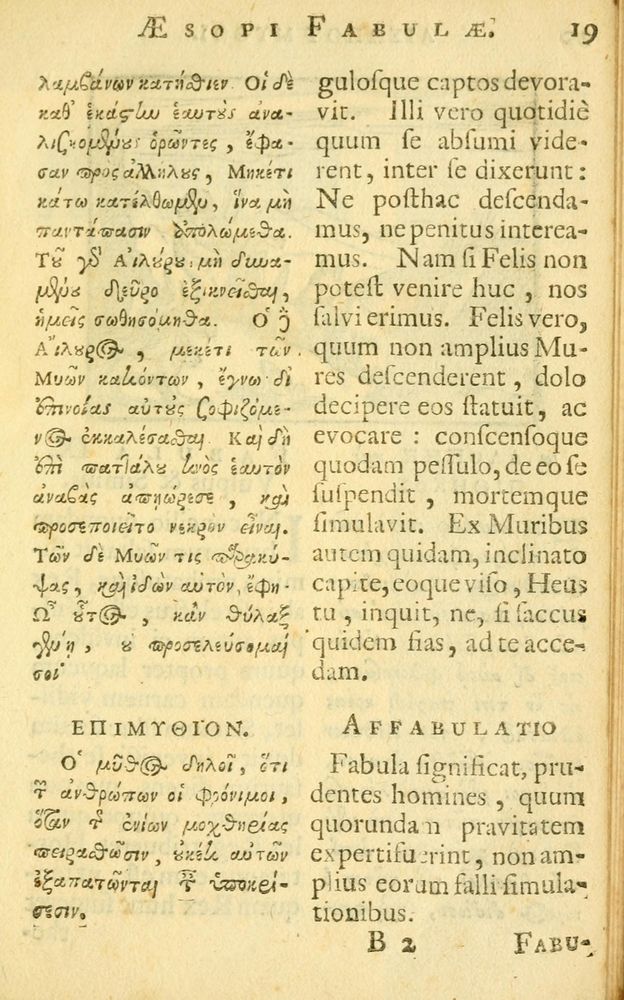 ÆSOPI FABULÆ. 19
λαμβάνων κατήσθιεν. Οἱ δὲ
καθ' ἑκάστην ἑαυτοὺς ἀνα-
λισκομένους ὁρῶντες, ἔφα-
σαν πρὸς ἀλλήλους, Μηκέτι
κάτω κατέλθωμεν, ἵνα μὴ
παντάπασιν ἀπολώμεθα.
Τοῦ γὰρ Αἰλούρου μὴ δυνα-
μένου δεῦρο ἐξικνεῖσθαι,
ἡμεῖς σωθησόμηθα. Ὁ δὲ
Αἴλουρος, μεκέτι τῶν
Μυῶν κατιόντων, ἔγνω δι'
ἐπινοίας αὐτοὺς σοφιζόμε-
νος ἐκκαλέσασθαι. Καὶ δὴ
ἐπὶ παττάλου τινὸς ἑαυτὸν
ἀναβὰς ἀπηώρεσε, καὶ
προσεποιεῖτο νεκρὸν εἶναι.
Τῶν δὲ Μυῶν τις παρακύ-
ψας, καὶ ἰδὼν αὐτὸν, ἔφη·
Ὦ οὗτος, κἂν θύλαξ
γένῃ, οὐ προσελεύσομαί
σοι
ΕΠΙΜΥΘΙΟΝ.
Ὁ μῦθος δηλοῖ, ὅτι
τῶν ἀνθρώπων οἱ φρόνιμοι,
ὅταν τῆς ἐνίων μοχθηρίας
πειραθῶσιν, οὐκέτι αὐτῶν
ἐξαπατῶνται ταῖς ὑποκρί-
σεσιν.
gulosque captos devora-
vit. Illi vero quotidiè
quum se absumi vide-
rent, inter se dixerunt:
Ne posthac descenda-
mus, ne penitus interea-
mus. Nam si Felis non
potest venire huc, nos
salvi erimus. Felis vero,
quum non amplius Mu-
res descenderent, dolo
decipere eos statuit, ac
evocare: conscensoque
quodam pessulo, de eo se
suspendit, mortemque
simulavit. Ex Muribus
autem quidam, inclinato
capite, eoque viso, Heus
tu, inquit, ne, si saccus
quidem fias, ad te acce-
dam.
AFFABULATIO
Fabula significat, pru-
dentes homines, quum
quorundam pravitatem
experti fuerint, non am-
plius eorum falli simula-
tionibus.
B 2 FABU-